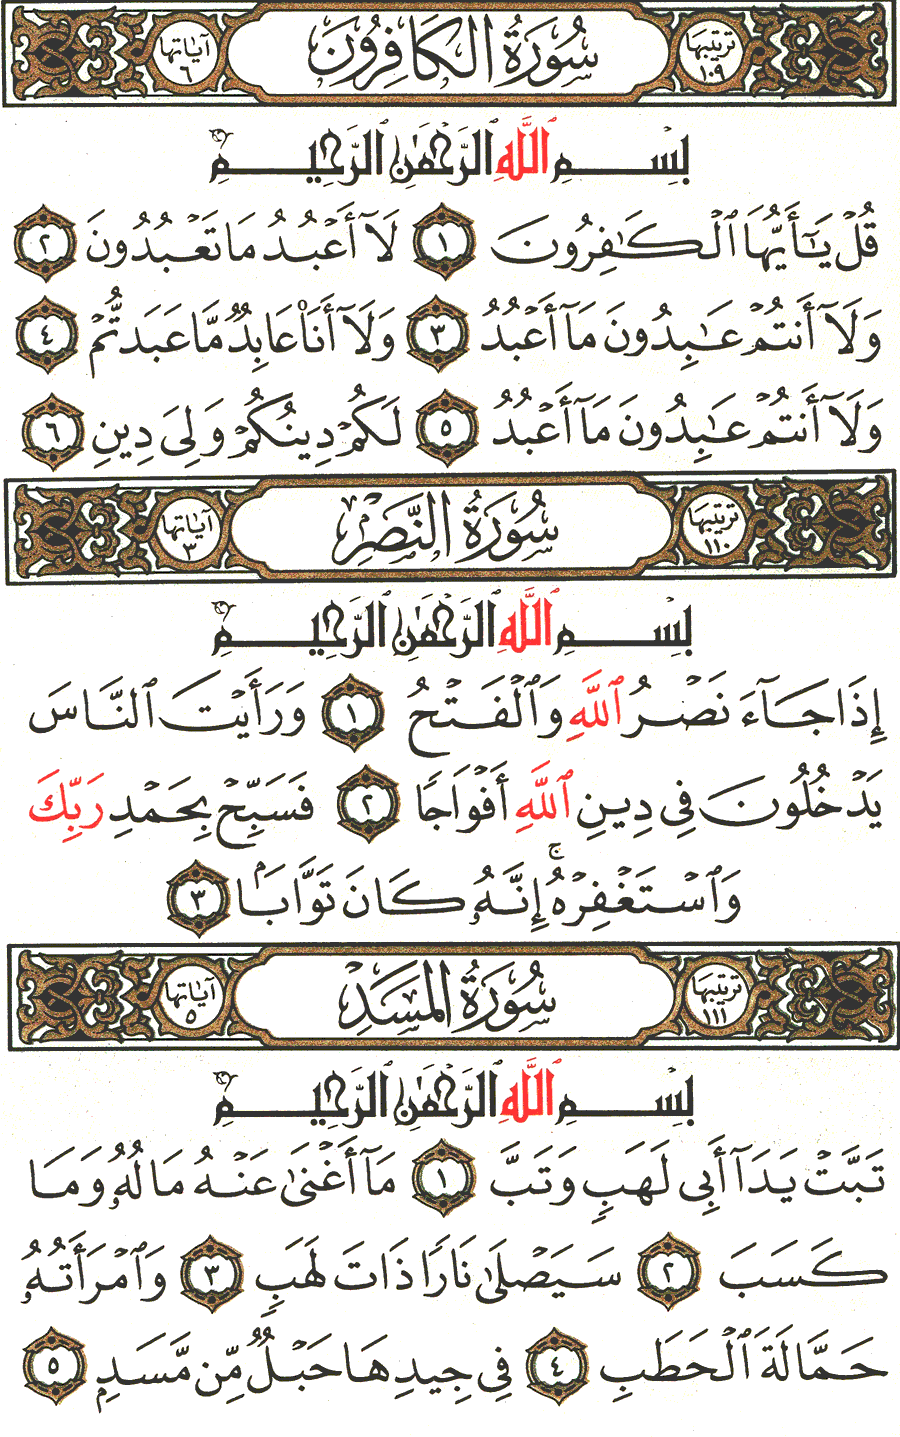 ترتيبها ١٠٩ سُورَةُ الكَافِرُونَ آياتها ٦
بِسْمِ ٱللَّهِ ٱلرَّحْمَٰنِ ٱلرَّحِيمِ
قُلْ يَٰٓأَيُّهَا ٱلْكَٰفِرُونَ ١ لَآ أَعْبُدُ مَا تَعْبُدُونَ ٢
وَلَآ أَنتُمْ عَٰبِدُونَ مَآ أَعْبُدُ ٣ وَلَآ أَنَا۠ عَابِدٌ مَّا عَبَدتُّمْ ٤
وَلَآ أَنتُمْ عَٰبِدُونَ مَآ أَعْبُدُ ٥ لَكُمْ دِينُكُمْ وَلِىَ دِينِ ٦
ترتيبها ١١٠ سُورَةُ النَّصْرِ آياتها ٣
بِسْمِ ٱللَّهِ ٱلرَّحْمَٰنِ ٱلرَّحِيمِ
إِذَا جَآءَ نَصْرُ ٱللَّهِ وَٱلْفَتْحُ ١ وَرَأَيْتَ ٱلنَّاسَ
يَدْخُلُونَ فِى دِينِ ٱللَّهِ أَفْوَاجًا ٢ فَسَبِّحْ بِحَمْدِ رَبِّكَ
وَٱسْتَغْفِرْهُ ۚ إِنَّهُۥ كَانَ تَوَّابَۢا ٣
ترتيبها ١١١ سُورَةُ المَسَدِ آياتها ٥
بِسْمِ ٱللَّهِ ٱلرَّحْمَٰنِ ٱلرَّحِيمِ
تَبَّتْ يَدَآ أَبِى لَهَبٍ وَتَبَّ ١ مَآ أَغْنَىٰ عَنْهُ مَالُهُۥ وَمَا
كَسَبَ ٢ سَيَصْلَىٰ نَارًا ذَاتَ لَهَبٍ ٣ وَٱمْرَأَتُهُۥ
حَمَّالَةَ ٱلْحَطَبِ ٤ فِى جِيدِهَا حَبْلٌ مِّن مَّسَدٍۭ ٥